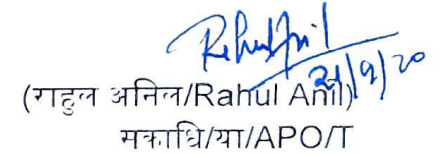 Rahul Anil
21/9/20
(राहुल अनिल/Rahul Anil)
मकाधि/या/APO/T